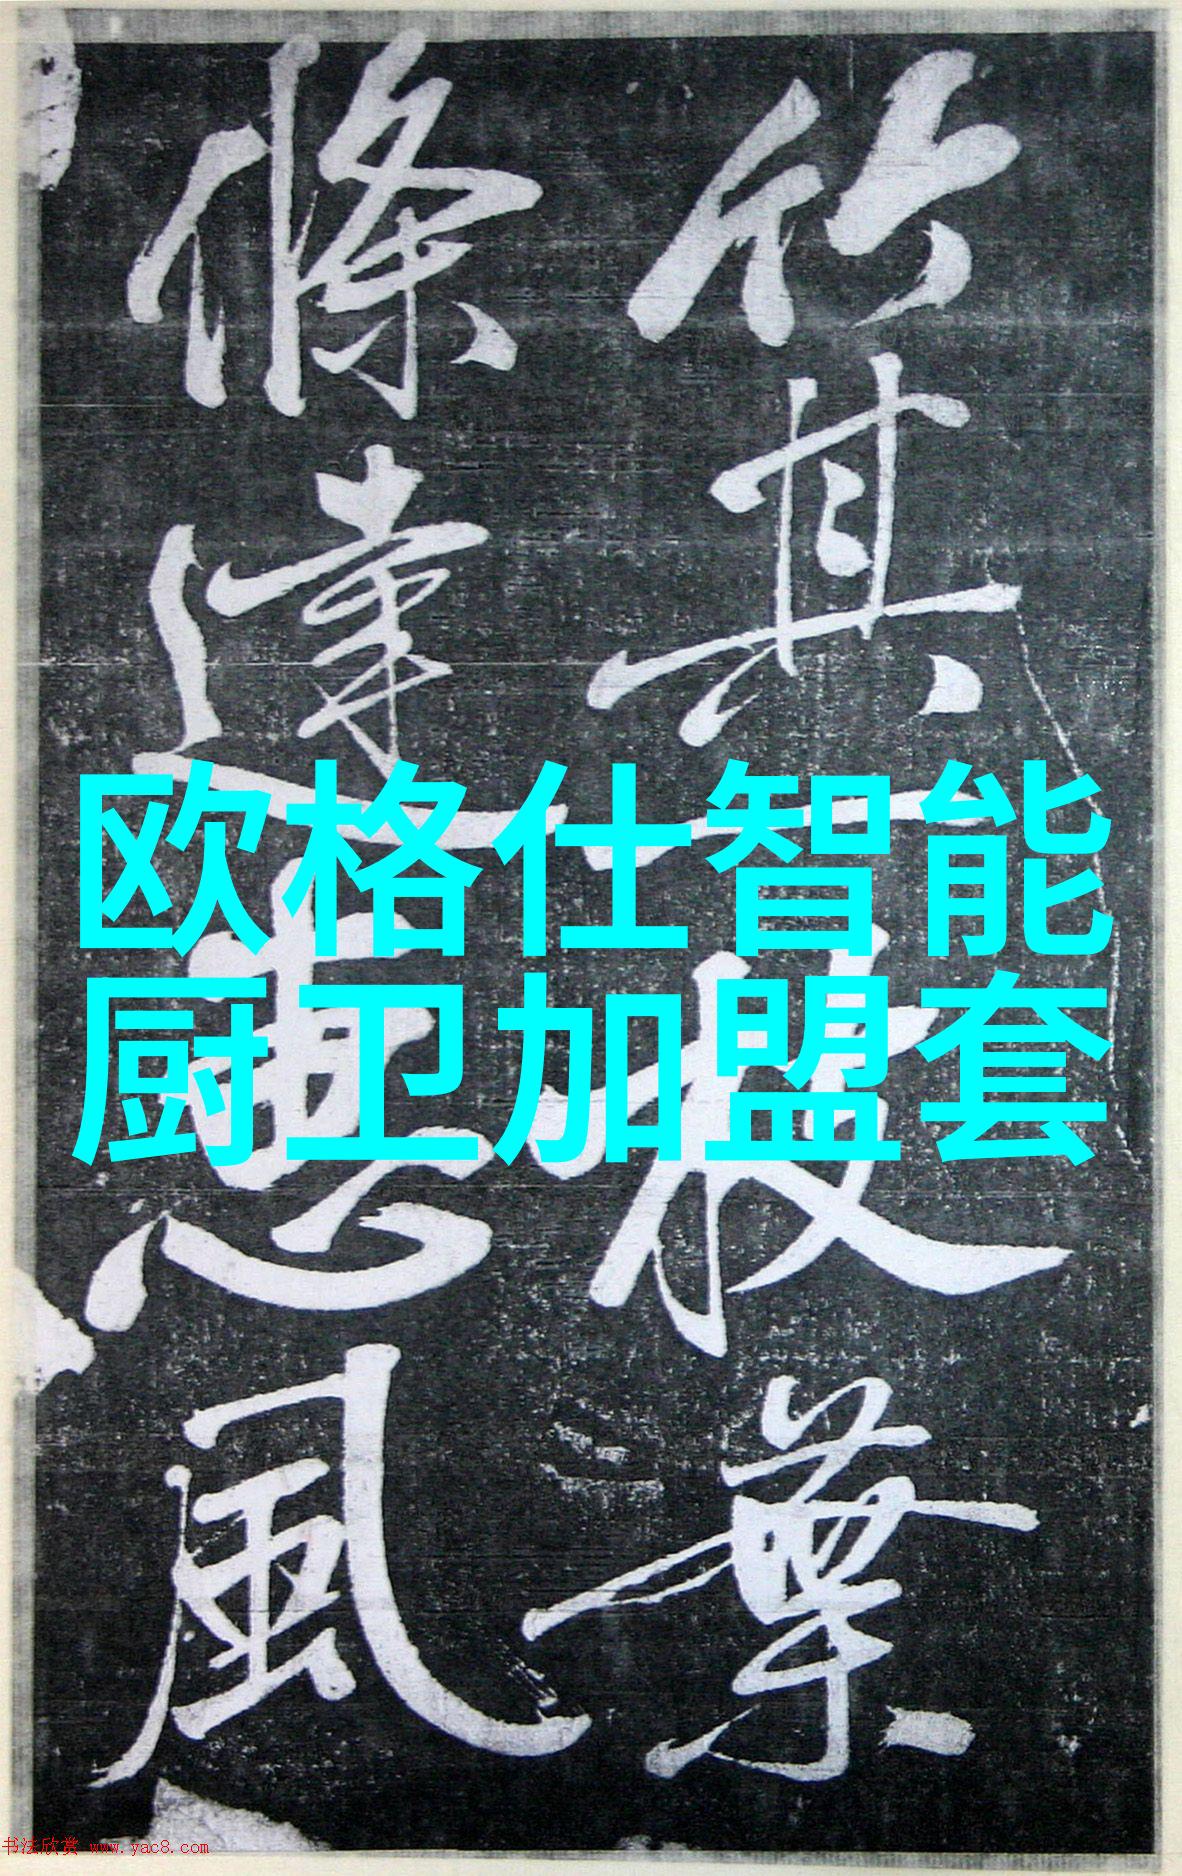 竹其枝葉
條達惠風
欧格仕智能
厨卫加盟套
书法欣赏 www.yac8.com